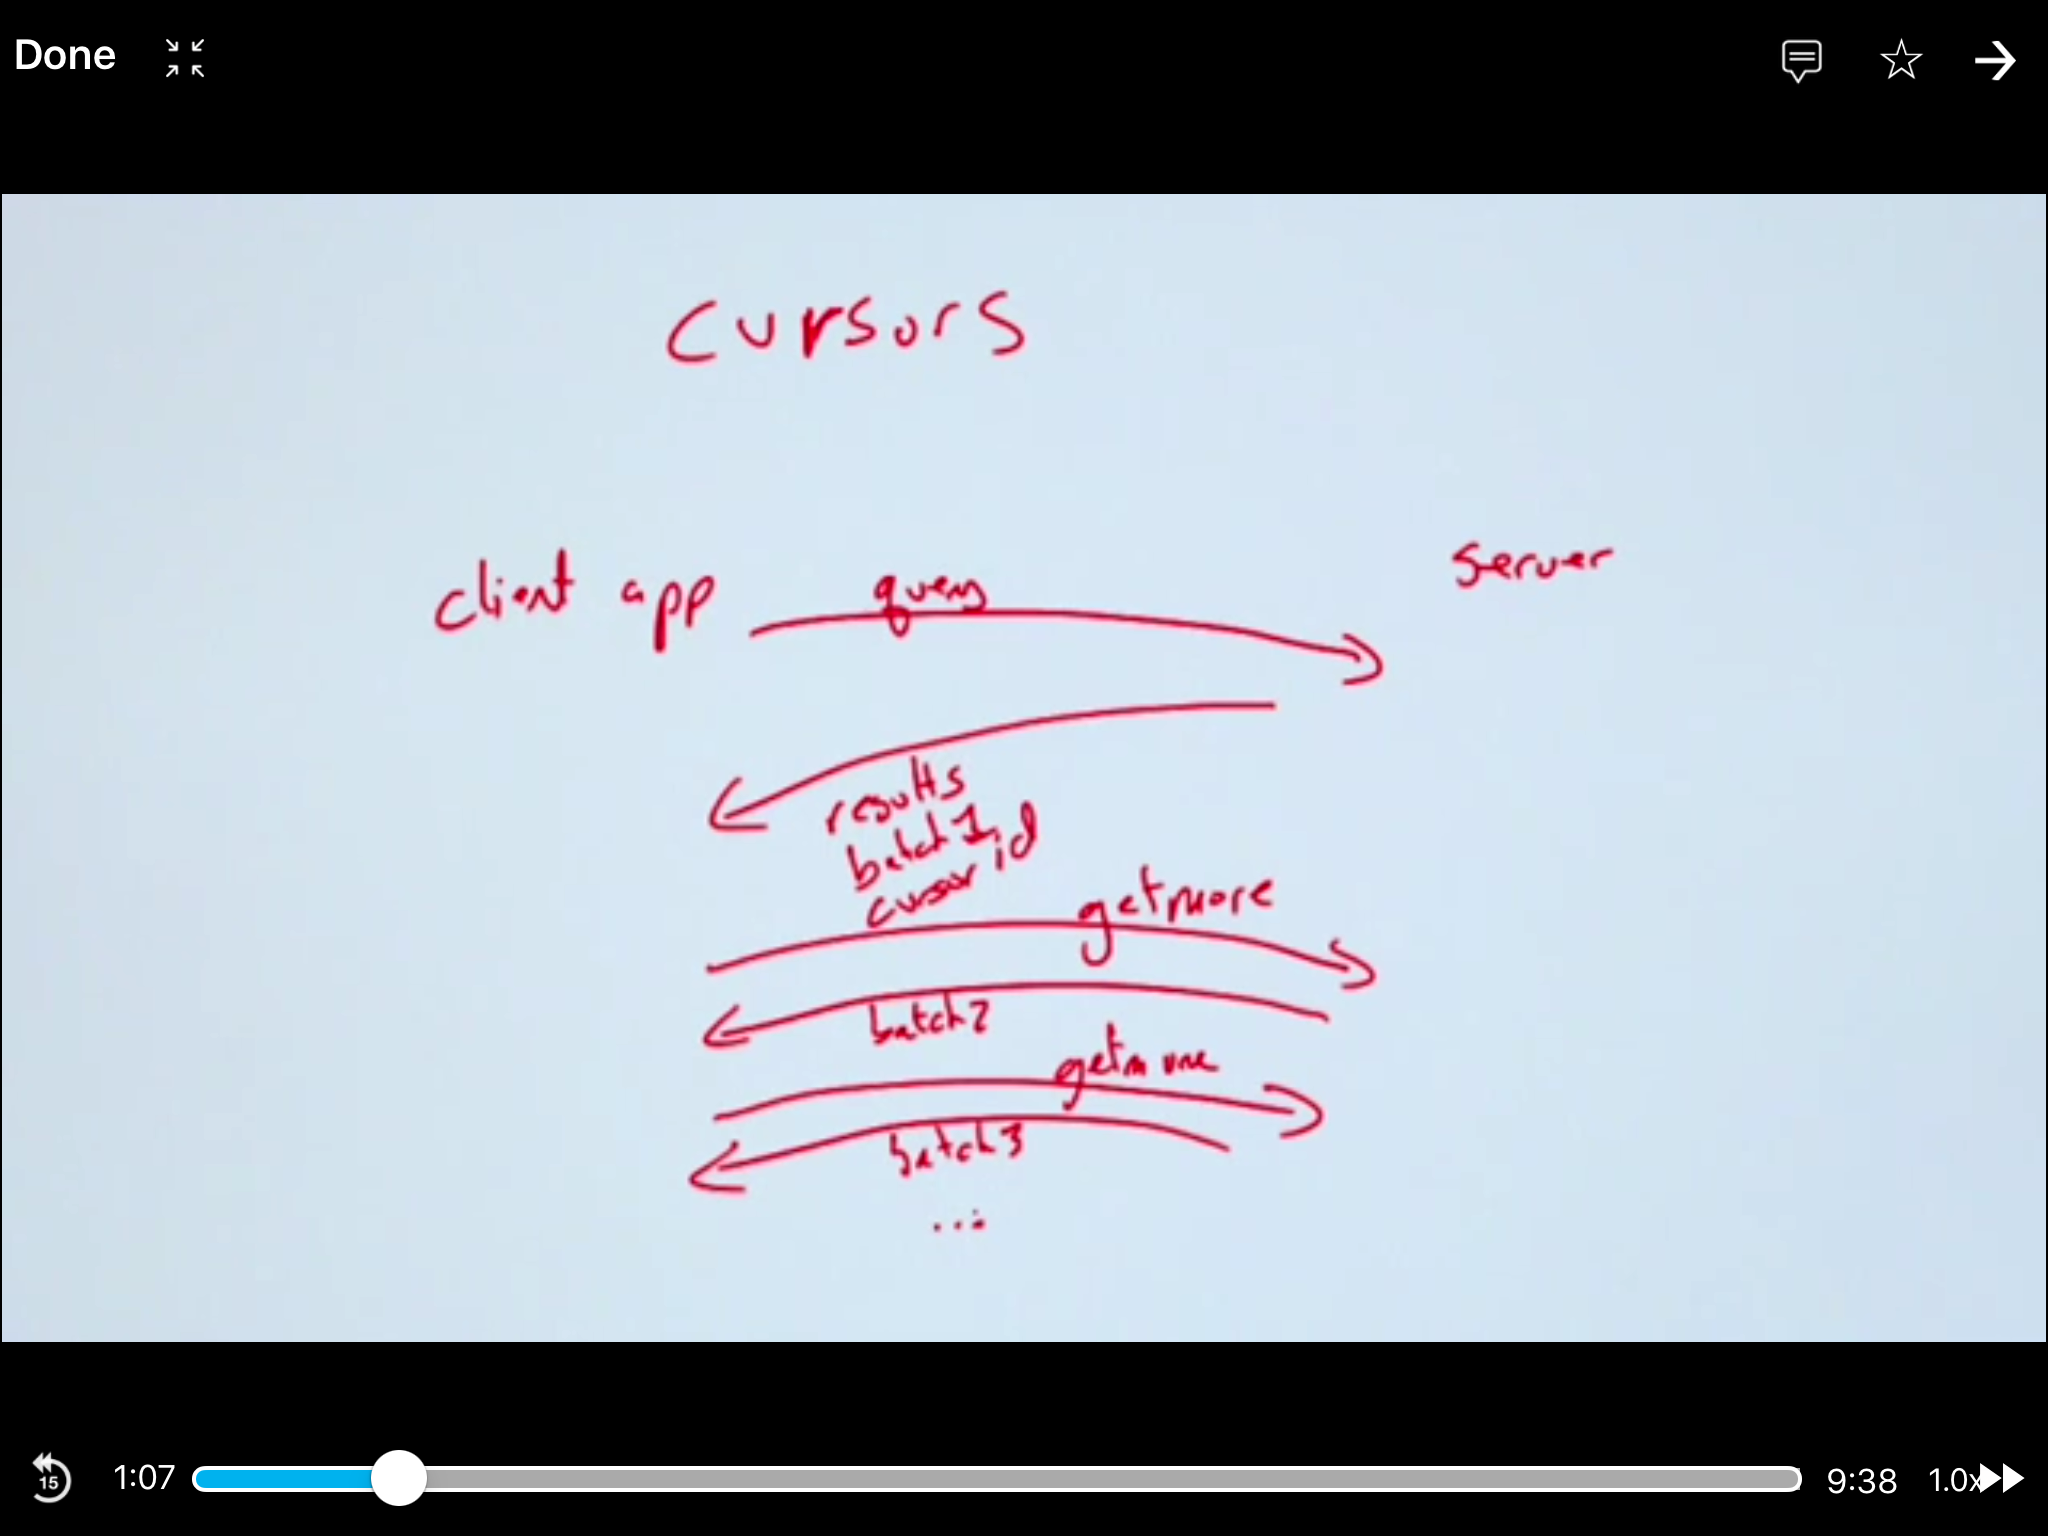 Done
cursors
client app
query
server
results
batch 1,
cursor id
getmore
batch2
getmore
batch3
...
15
1:07
9:38
1.0x